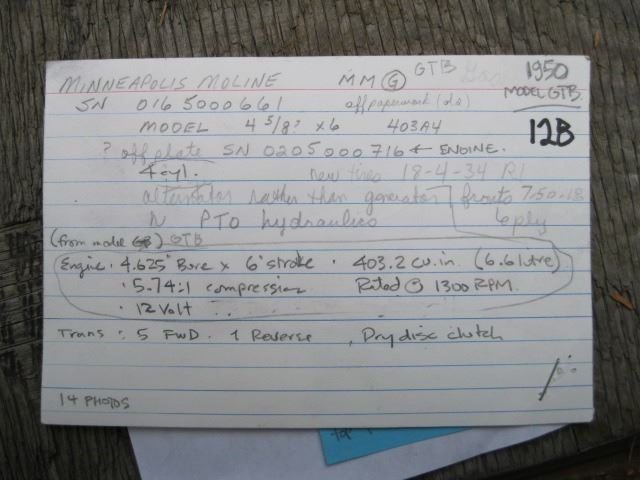 MINNEAPOLIS MOLINE MM G GTB 1950
MODEL GTB
SN 0165000661 off paperwork
12B
MODEL 4 5/8? x6 403A4
? off plate SN 0205000716 ← ENGINE.
4 cyl. new tires 18-4-34 R1
alternator rather than generator fronts 7-50-18
N PTO hydraulics 6 ply
(from model GB) GTB
Engine · 4.625" Bore x 6" stroke · 403.2 cu.in. (6.6 litre)
· 5.74:1 compression Rated @ 1300 RPM.
· 12 Volt
Trans : 5 FWD. 1 Reverse , Dry disc clutch
14 PHOTOS